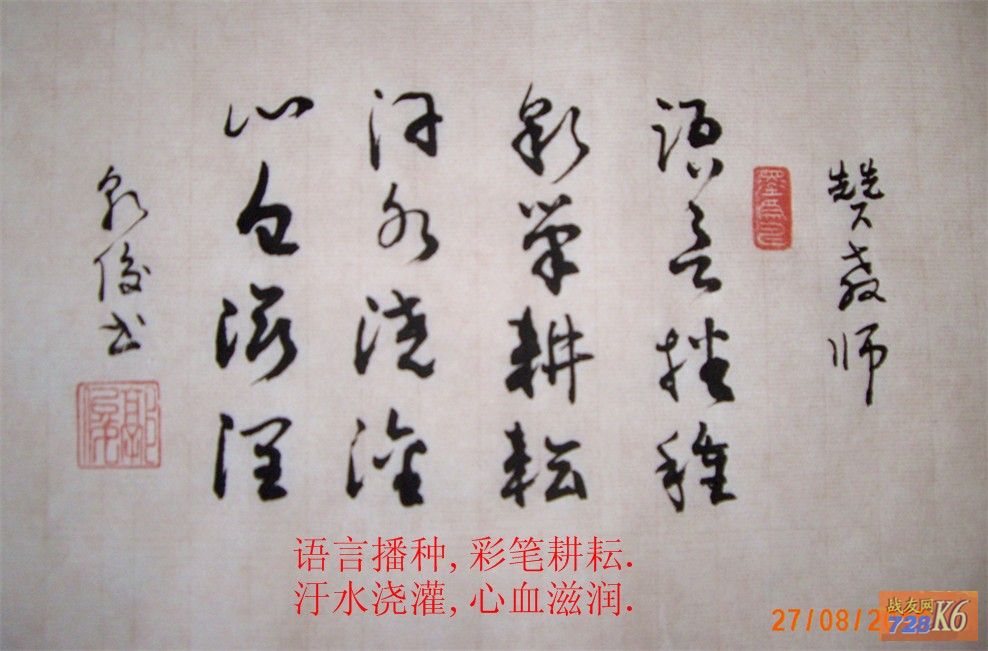 赞教师
语言播种
彩筆耕耘
汗水浇灌
心血滋润
俊书
语言播种,彩笔耕耘.
汙水浇灌,心血滋润.
27/08/2
战友网
728K6